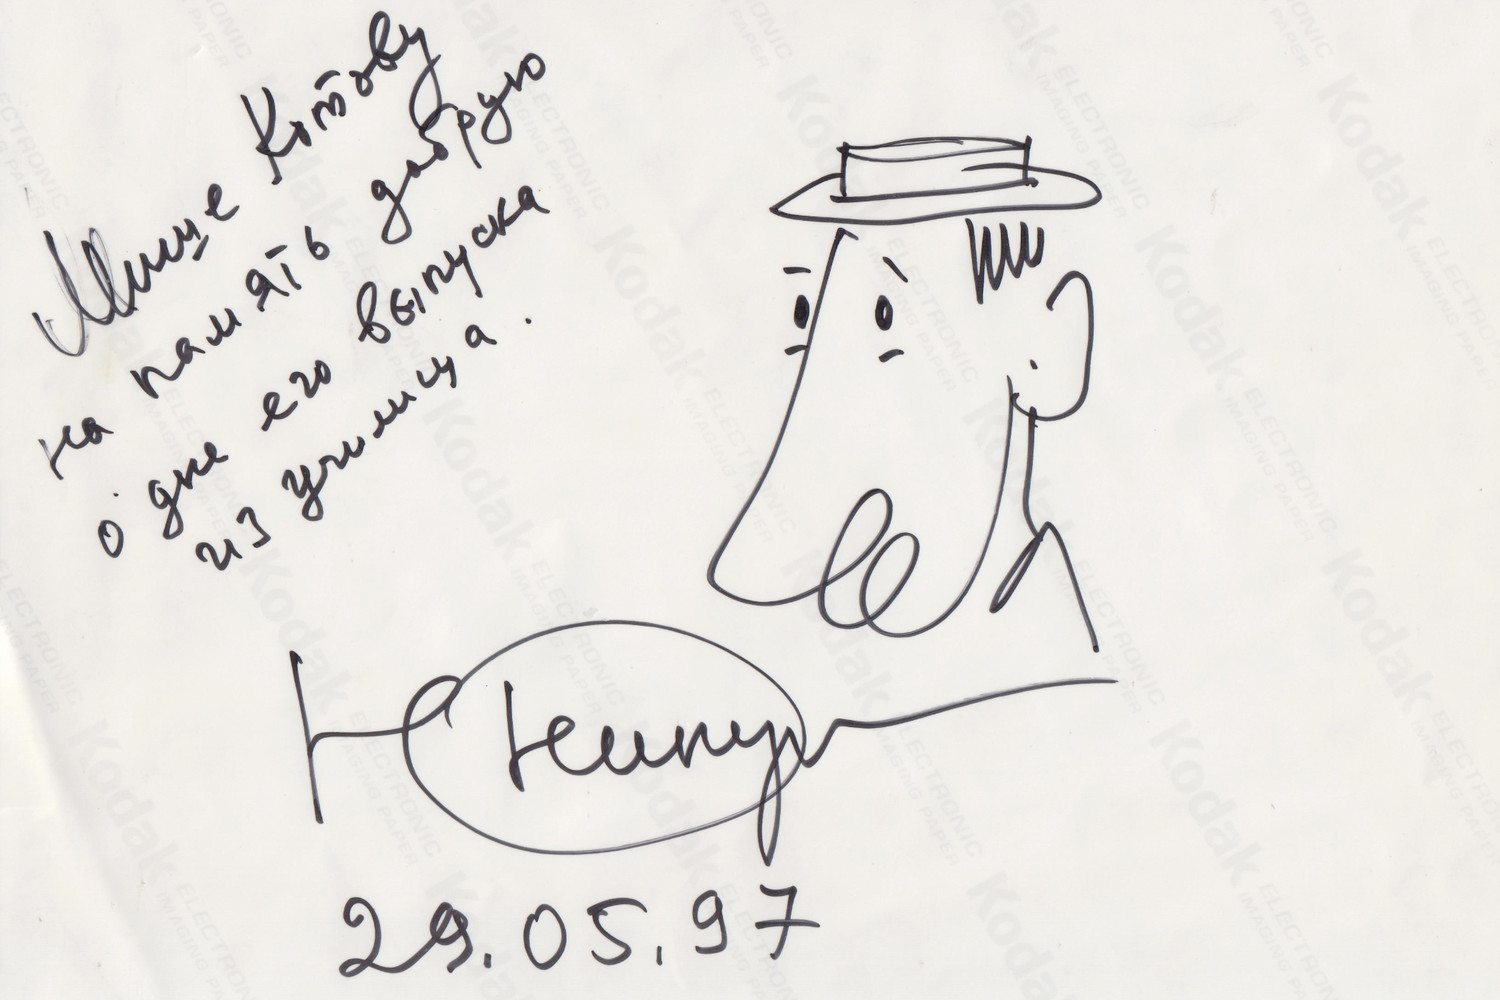 Мише Котову
на память добрую
о дне его выпуска
из училища.
Ю Никулин
29.05.97
Kodak
ELECTRONIC
IMAGING PAPER